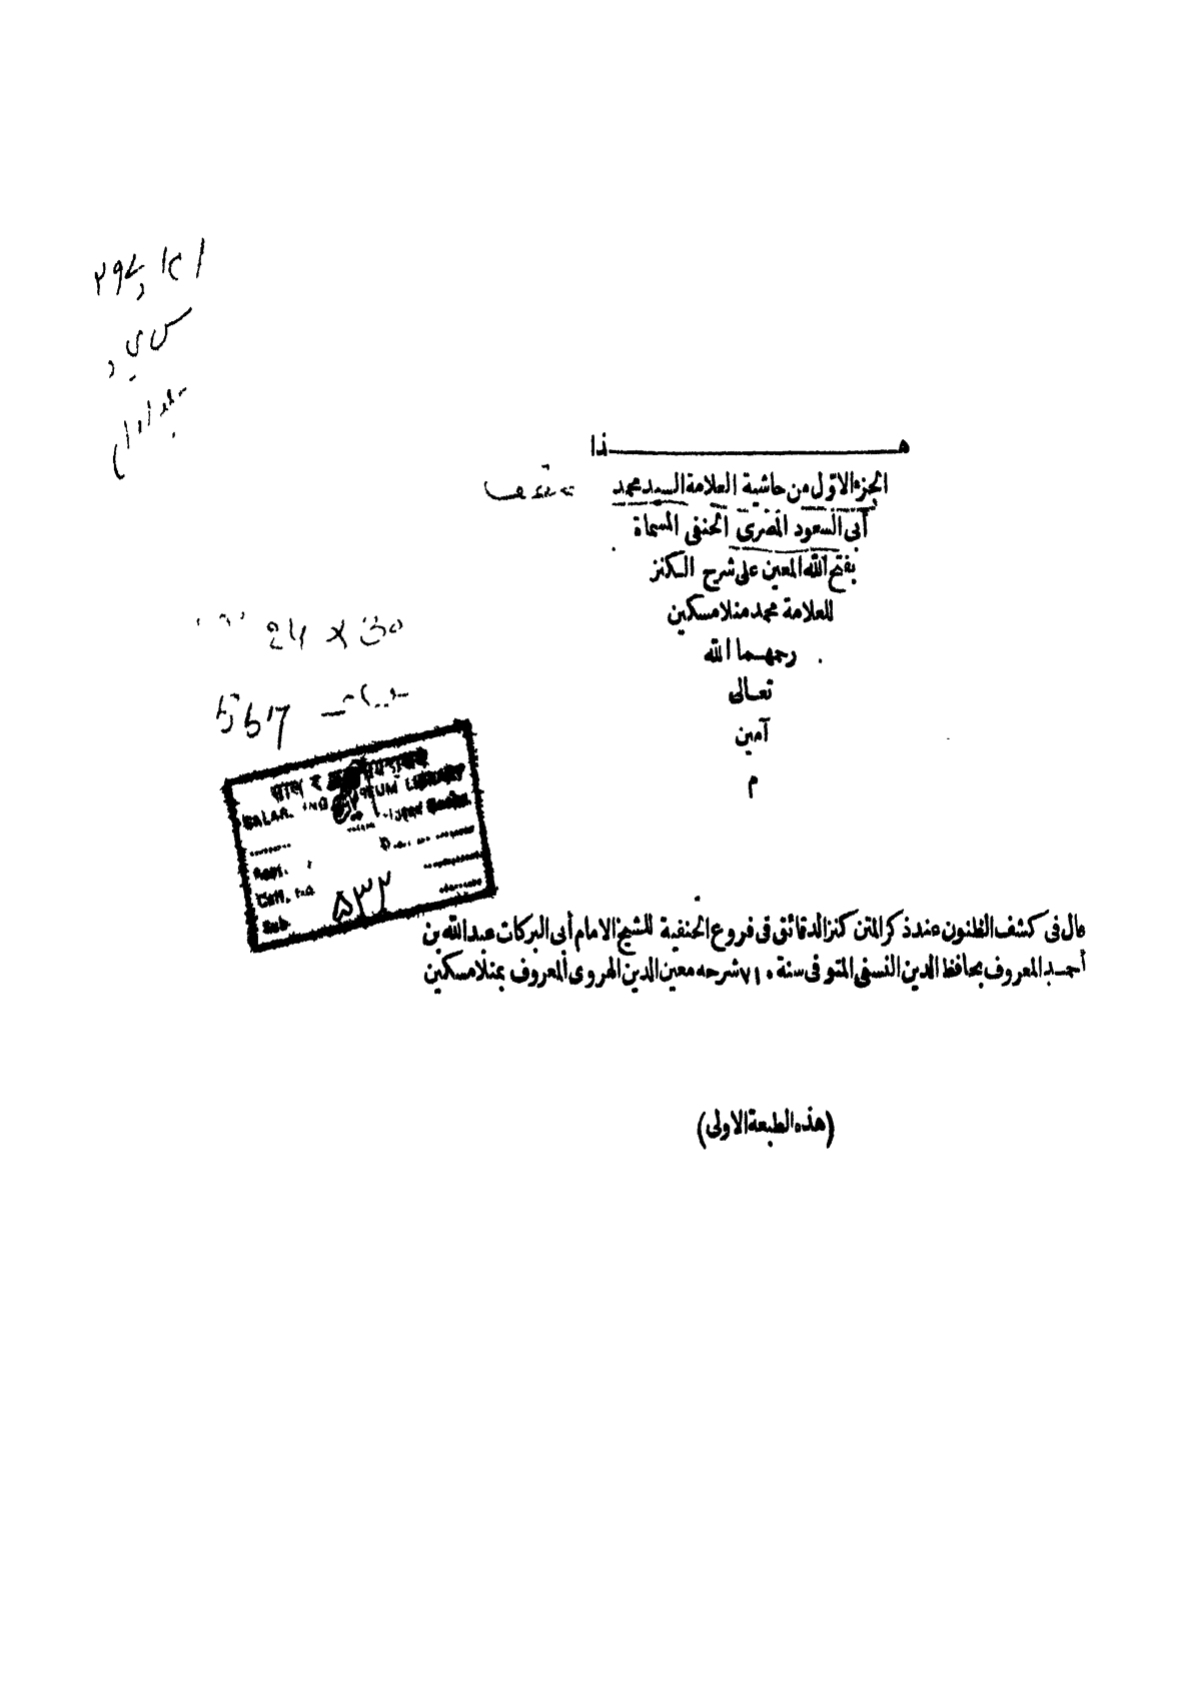 هـــــــــذا
الجزء الاوّل من حاشية العلامة السيد محمد
أبى السعود المصرى الحنفى المسماة
بفتح الله المعين على شرح الكنز
للعلامة محمد منلا مسكين
رحمهما الله
تعالى
آمين
م
24 x
557
SALAR LIBRARY
Call. no
Sub.
۵۳۲
قال فى كشف الظنون عند ذكر المتن كنز الدقائق فى فروع الحنفية للشيخ الامام أبى البركات عبد الله بن
أحمد المعروف بحافظ الدين النسفى المتوفى سنة ٧١٠ شرحه معين الدين الهروى المعروف بمنلا مسكين
(هذه الطبعة الاولى)